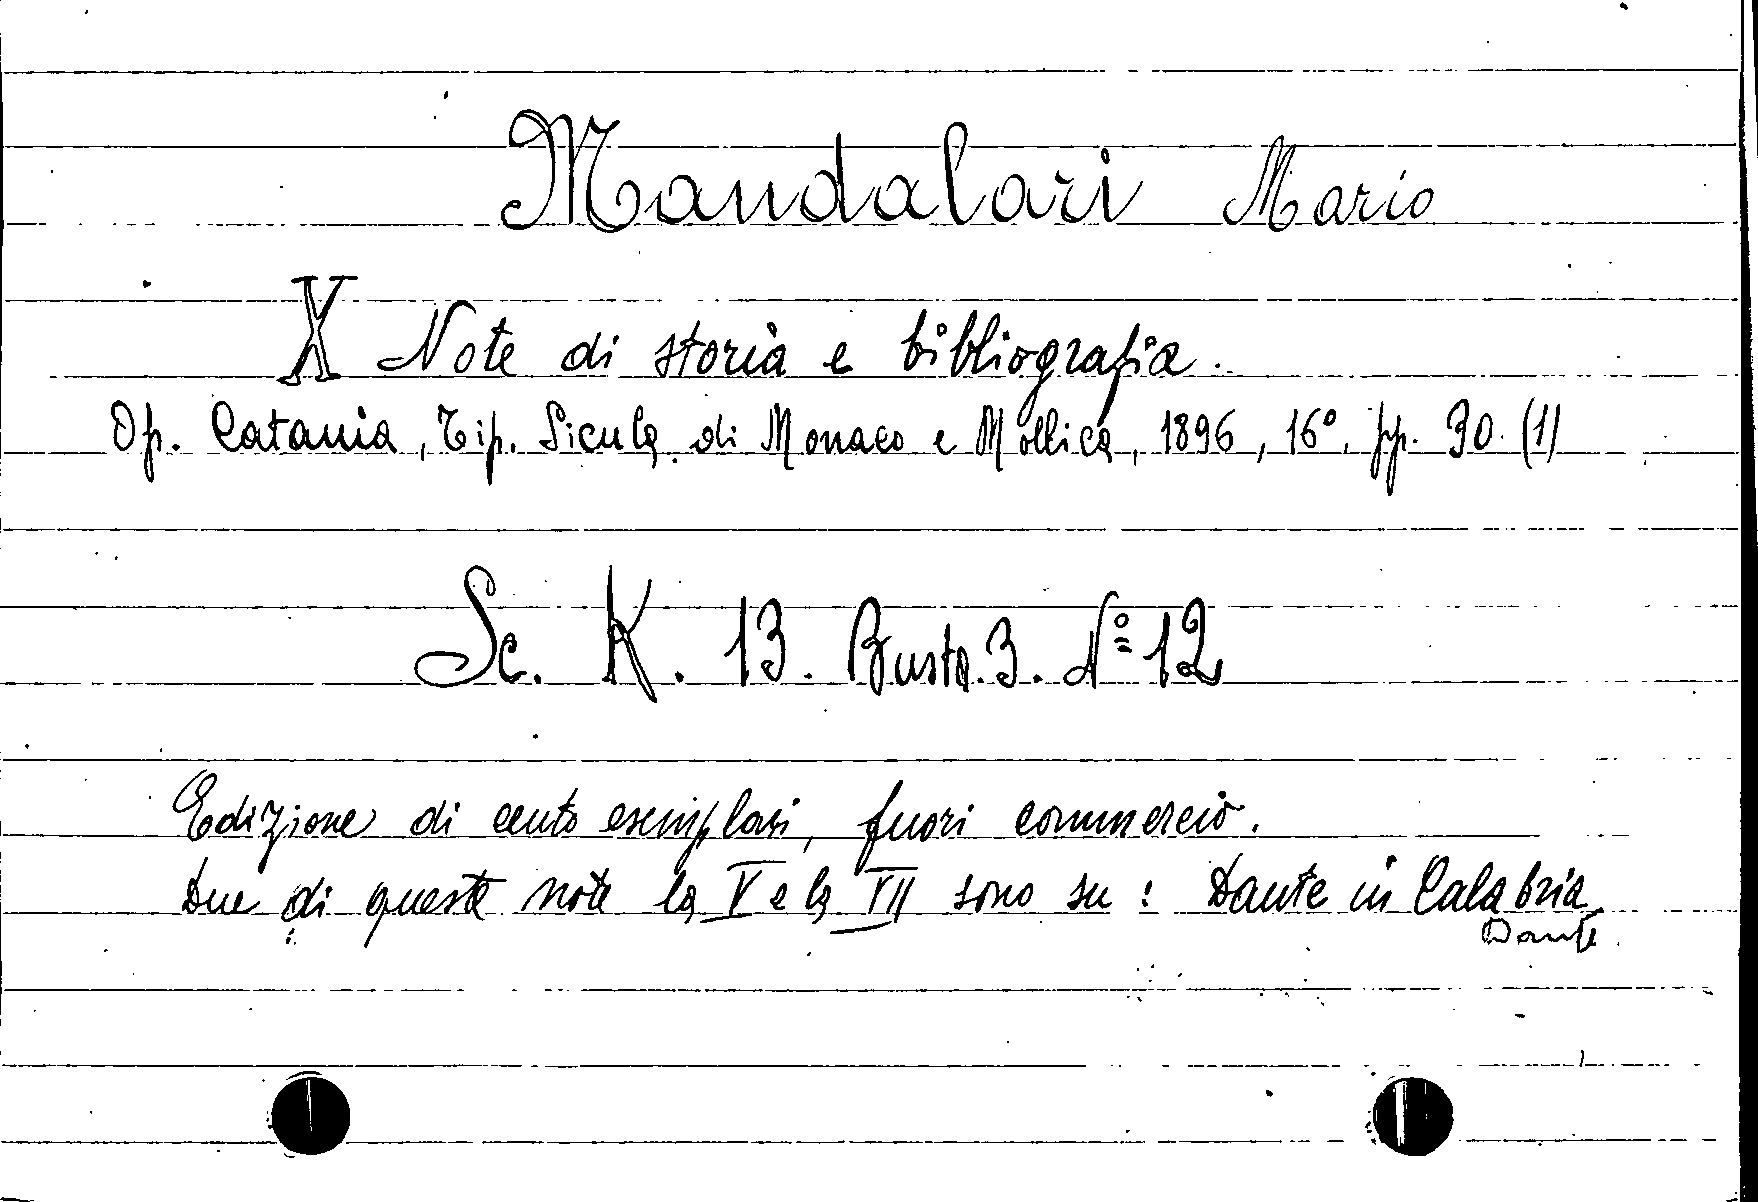 Mandalari Mario
X Note di storia e bibliografia.
Op. Catania, Tip. Sicula di Monaco e Mollica, 1896, 16°. pp. 30. (1)
Sc. K. 13. Busta. 3. N° 12
Edizione di cento esemplari, fuori commercio.
Due di queste note la V e la VII sono su: Dante in Calabria
Dante